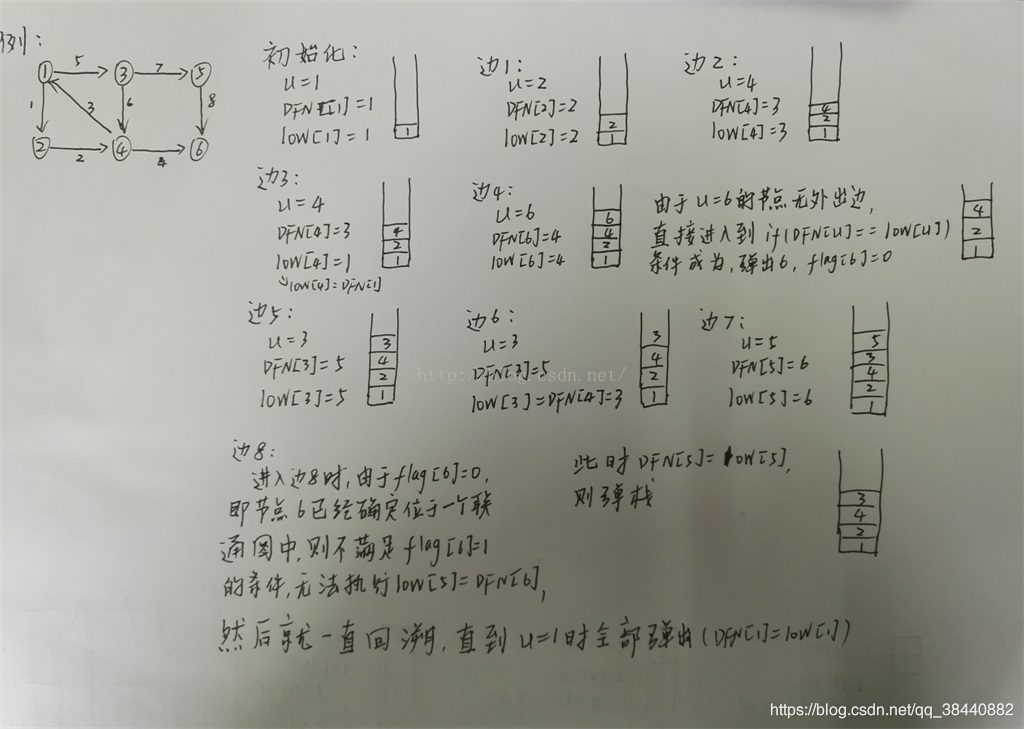 例:
1 5 3 7 5
1 3 6 8
2 2 4 4 6
初始化:
u=1
DFN[1]=1
low[1]=1
1
边1:
u=2
DFN[2]=2
low[2]=2
2
1
边2:
u=4
DFN[4]=3
low[4]=3
4
2
1
边3:
u=4
DFN[4]=3
low[4]=1
↘low[4]=DFN[1]
4
2
1
边4:
u=6
DFN[6]=4
low[6]=4
6
4
2
1
由于u=6的节点无外出边,
直接进入到if(DFN[u]==low[u])
条件成为,弹出6,flag[6]=0
4
2
1
边5:
u=3
DFN[3]=5
low[3]=5
3
4
2
1
边6:
u=3
DFN[3]=5
low[3]=DFN[4]=3
3
4
2
1
边7:
u=5
DFN[5]=6
low[5]=6
5
3
4
2
1
边8:
进入边8时,由于flag[6]=0,
即节点6已经确定位于一个联
通图中,则不满足flag[6]=1
的条件,无法执行low[5]=DFN[6],
此时DFN[5]=low[5],
则弹栈
3
4
2
1
然后就一直回溯,直到u=1时全部弹出(DFN[1]=low[1])
http://blog.csdn.net/
https://blog.csdn.net/qq_38440882